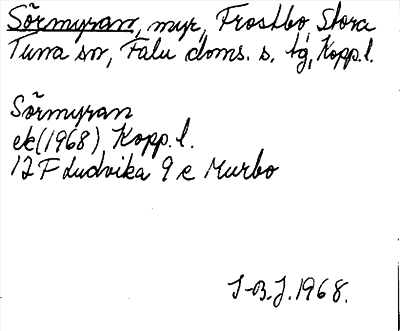 Sörmyran, myr, Frostbo, Stora
Tuna sn, Falu doms. s. tg, Kopp. l.
Sörmyran
ek (1968), Kopp. l.
12 F Ludvika 9 c Murbo
I-B. J. 1968.